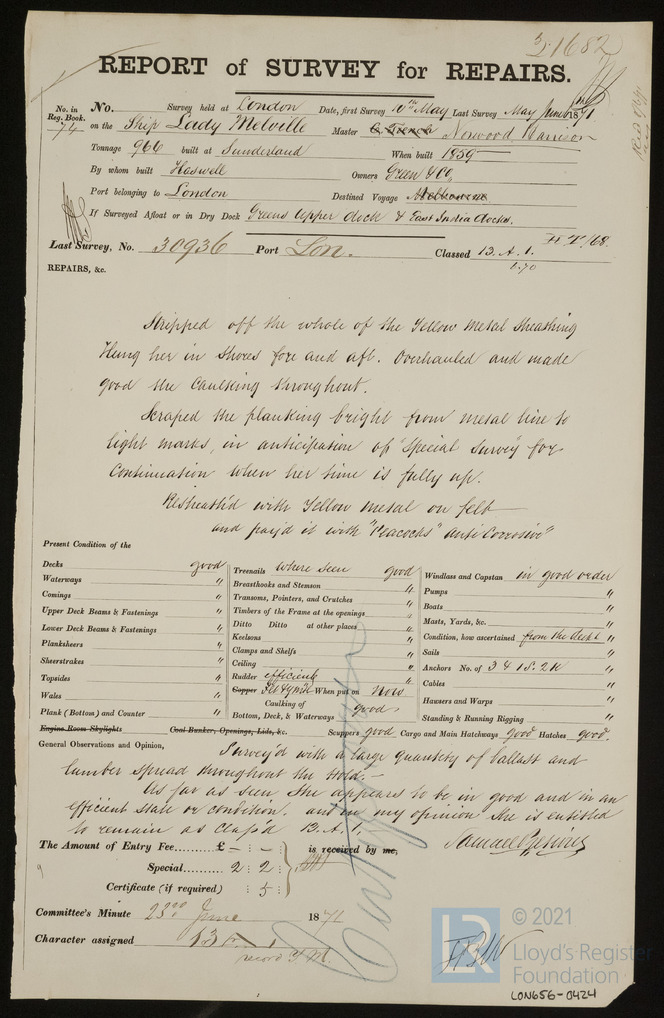 1682
REPORT of SURVEY for REPAIRS.
No. in Reg. Book. No. Survey held at London Date, first Survey 10th May Last Survey May June 1871
74 on the Ship Lady Melville Master Norwood Harrison
Tonnage 966 built at Sunderland When built 1859
By whom built Haswell Owners Green & Co,
Port belonging to London Destined Voyage Melbourne
If Surveyed Afloat or in Dry Dock Greens Upper dock & East India docks.
Last Survey, No. 30936 Port Lon. Classed 13. A. 1.
6.70
REPAIRS, &c.
Stripped off the whole of the Yellow Metal Sheathing
Hung her in Shores fore and aft. Overhauled and made
good the Caulking throughout.
Scraped the planking bright from metal line to
light marks, in anticipation of "Special Survey" for
Continuation when her time is fully up.
Resheath'd with Yellow metal on felt
and pay'd it with "Peacocks" Anti Corrosive"
Present Condition of the
Decks good
Waterways "
Comings "
Upper Deck Beams & Fastenings "
Lower Deck Beams & Fastenings "
Planksheers "
Sheerstrakes "
Topsides "
Wales "
Plank (Bottom) and Counter "
Engine Room Skylights Coal Bunker, Openings, Lids, &c.
Treenails where seen good
Breasthooks and Stemson "
Transoms, Pointers, and Crutches "
Timbers of the Frame at the openings "
Ditto Ditto at other places "
Keelsons "
Clamps and Shelfs "
Ceiling "
Rudder efficient "
Copper Felt & Y M When put on now
Caulking of
Bottom, Deck, & Waterways good
Windlass and Capstan in good order
Pumps "
Boats "
Masts, Yards, &c. "
Condition, how ascertained from the deck "
Sails "
Anchors No. of 3 & 1S. 2K "
Cables "
Hawsers and Warps "
Standing & Running Rigging "
Scuppers good Cargo and Main Hatchways good Hatches good.
General Observations and Opinion, Survey'd with a large quantity of ballast and
lumber spread throughout the Hold.
As far as seen she appears to be in good and in an
efficient state or condition. and in my opinion she is entitled
to remain as Class'd 13. A. 1.
The Amount of Entry Fee...... £ - : - : is received by me,
Special...... 2 : 2 :
Certificate (if required) : 5 :
Committee's Minute 23rd June 1871
Character assigned 13
record Y.M.
LR © 2021
Lloyd's Register
Foundation
LON656-0424